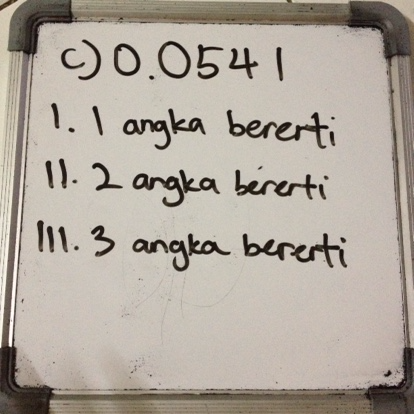 c) 0.0541
I. 1 angka bererti
II. 2 angka bererti
III. 3 angka bererti